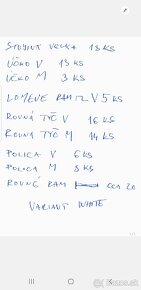 STOJINY VEĽKÁ 13 KS
VEKO V 13 KS
VEKO M 3 KS
LOMENÉ RAM V 5 KS
ROVNÁ TYČ V 16 KS
ROVNÁ TYČ M 14 KS
POLICA V 6 KS
POLICA M 8 KS
ROVNÉ RAM CCA 20
VARIANT WHITE
bazos.sk